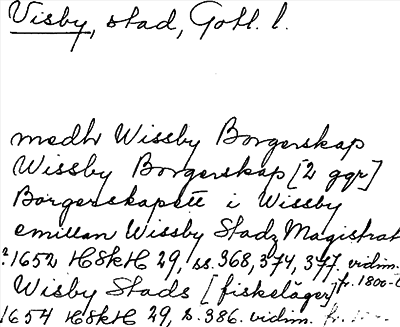 Visby, stad, Gotl. l.
medh Wissby Borgerskap
Wissby Borgerskap [2 ggr]
Borgerskapett i Wissby
emillan Wissby Stadz Magistrat
1652 HSkH 29, ss. 368, 374, 377. vidim.
fr. 1800-t
Wisby Stads [fiskeläger]
1654 HSkH 29, s. 386. vidim. fr.